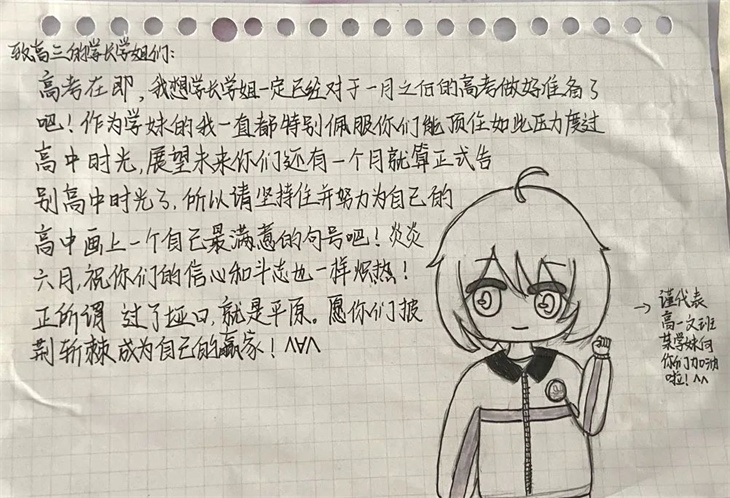 致高三的学长学姐们:
高考在即,我想学长学姐一定已经对于一月之后的高考做好准备了
吧!作为学妹的我一直都特别佩服你们能顶住如此压力度过
高中时光,展望未来你们还有一个月就算正式告
别高中时光了,所以请坚持住并努力为自己的
高中画上一个自己最满意的句号吧!炎炎
六月,祝你们的信心和斗志也一样炽热!
正所谓 过了垭口,就是平原。愿你们披
荆斩棘成为自己的赢家!^V^
→ 谨代表
高一文班
某学妹向
你们加油
啦!^^